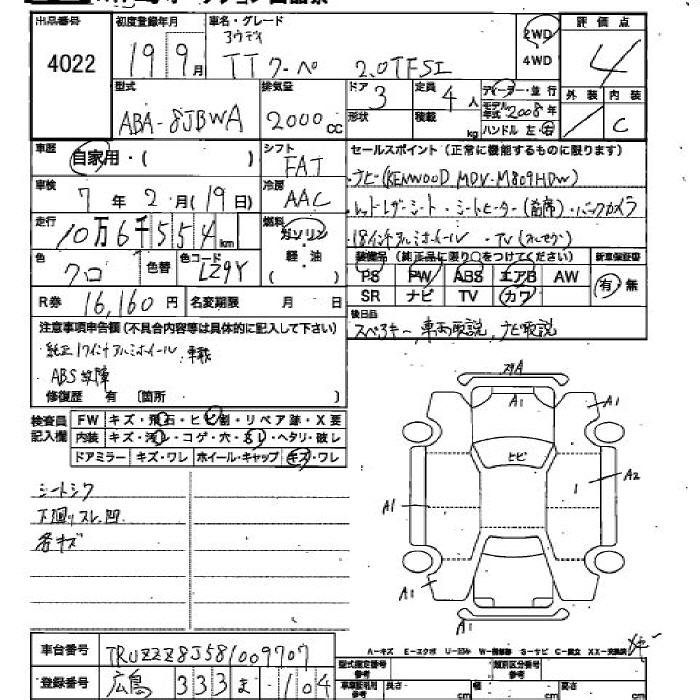 出品番号
4022
初度登録年月
19 9月
車名・グレード
アウディ
TT クーペ 2.0TFSI
2WD
4WD
評価点
4
型式
ABA-8JBWA
排気量
2000cc
ドア 3
形状
定員 4人
積載 kg
ディーラー・並行
モデル年式 2008年
ハンドル 左・右
外装
内装
C
車歴
自家用・( )
シフト
FAT
車検
7年2月(19日)
冷房
AAC
走行
10万6千554km
燃料
ガソリン
軽・油
( )
色
クロ
色替
色コード
LZ9Y
R券 16,160円
名変期限 月 日
セールスポイント(正常に機能するものに限ります)
・ナビ(KENWOOD MDV-M809HDW)
・レッドレザーシート・シートヒーター(前席)・バックカメラ
・18インチアルミホイール ・TV(フルセグ)
装備品(純正品に限り○をつけてください)
PS PW ABS エアB AW
SR ナビ TV カワ
新車保証書
有・無
後日品
スペアキー、車両取説、ナビ取説
注意事項申告欄(不具合内容等は具体的に記入して下さい)
・純正17インチアルミホイール、車載
・ABS故障
修復歴 有 〔箇所 〕
検査員
記入欄
FW キズ・飛石・ヒビ割・リペア跡・X要
内装 キズ・汚レ・コゲ・穴・スレ・ヘタリ・破レ
ドアミラー キズ・ワレ ホイール・キャップ キズ・ワレ
シートシワ
下廻りスレ、凹
各キズ
A1
A1
ヒビ
A2
1
A1
A1
A1
車台番号
TRUZZZ8J581009707
登録番号
広島 333 ま ・104
A-キズ E-エクボ U-凹み W-補修跡 S-サビ C-腐食 XX-交換済
型式指定番号
参考
類別区分番号
参考
車検証私用
参考
長さ cm
幅 cm
高さ cm